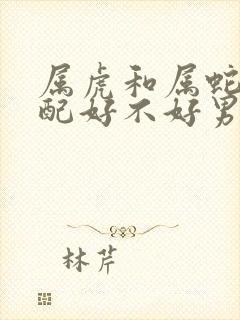 属虎和属蛇
配好不好男
林芹